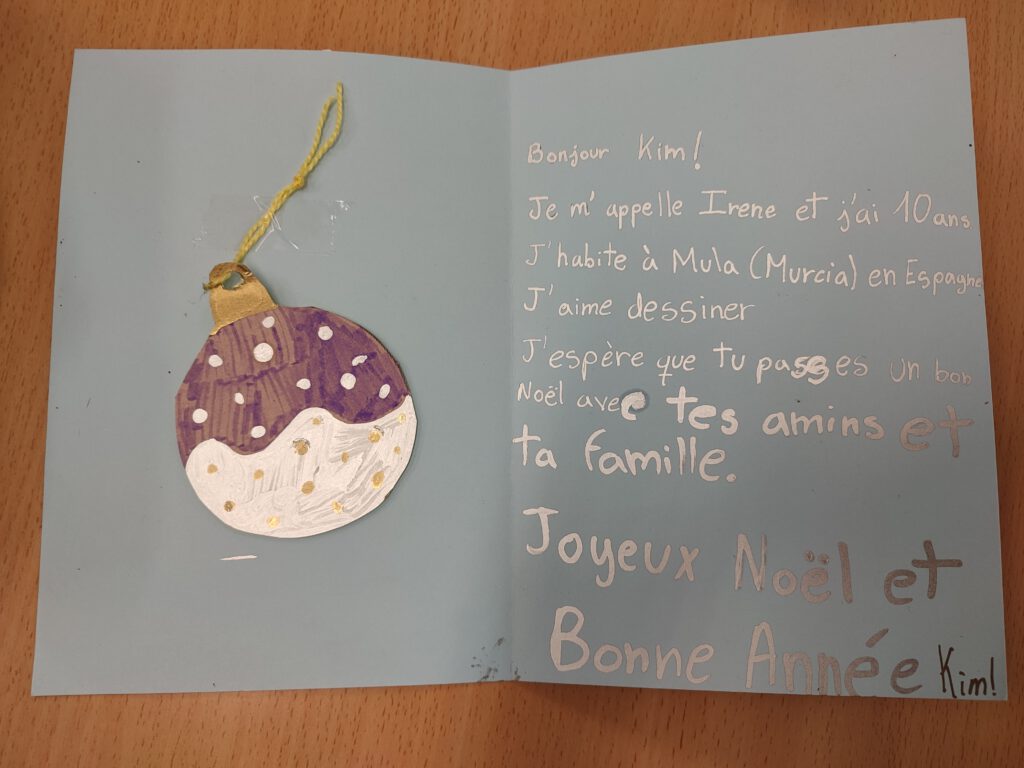 Bonjour Kim!
Je m'appelle Irene et j'ai 10 ans.
J'habite à Mula (Murcia) en Espagne
J'aime dessiner
J'espère que tu passes un bon
Noël avec tes amins et
ta famille.
Joyeux Noël et
Bonne Année Kim!